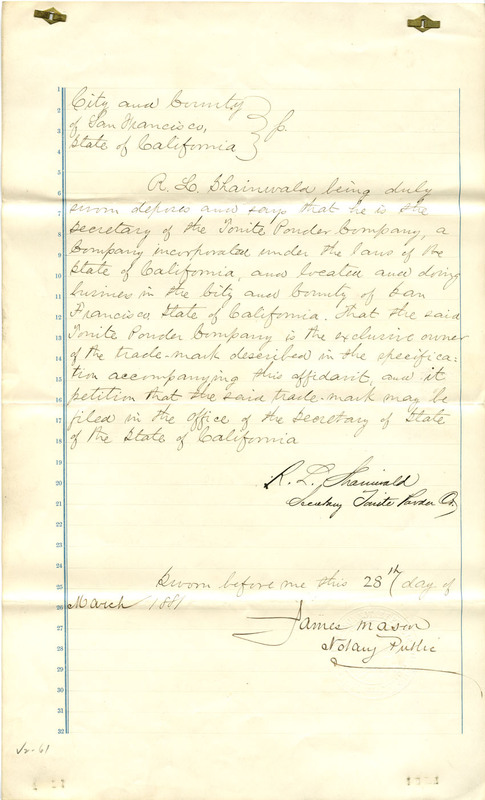 City and County
of San Francisco, } ss.
State of California
R. L. Shainwald being duly
sworn deposes and says that he is the
secretary of the Tonite Powder Company, a
Company incorporated under the laws of the
State of California, and located and doing
business in the City and County of San
Francisco State of California. That the said
Tonite Powder Company is the exclusive owner
of the trade-mark described in the specifica-
tion accompanying this affidavit, and it
petition that the said trade-mark may be
filed in the office of the Secretary of State
of the State of California
R. L. Shainwald
Secretary Tonite Powder Co.
Sworn before me this 28th day of
March 1881
James Mason
Notary Public
1
2
3
4
5
6
7
8
9
10
11
12
13
14
15
16
17
18
19
20
21
22
23
24
25
26
27
28
29
30
31
32